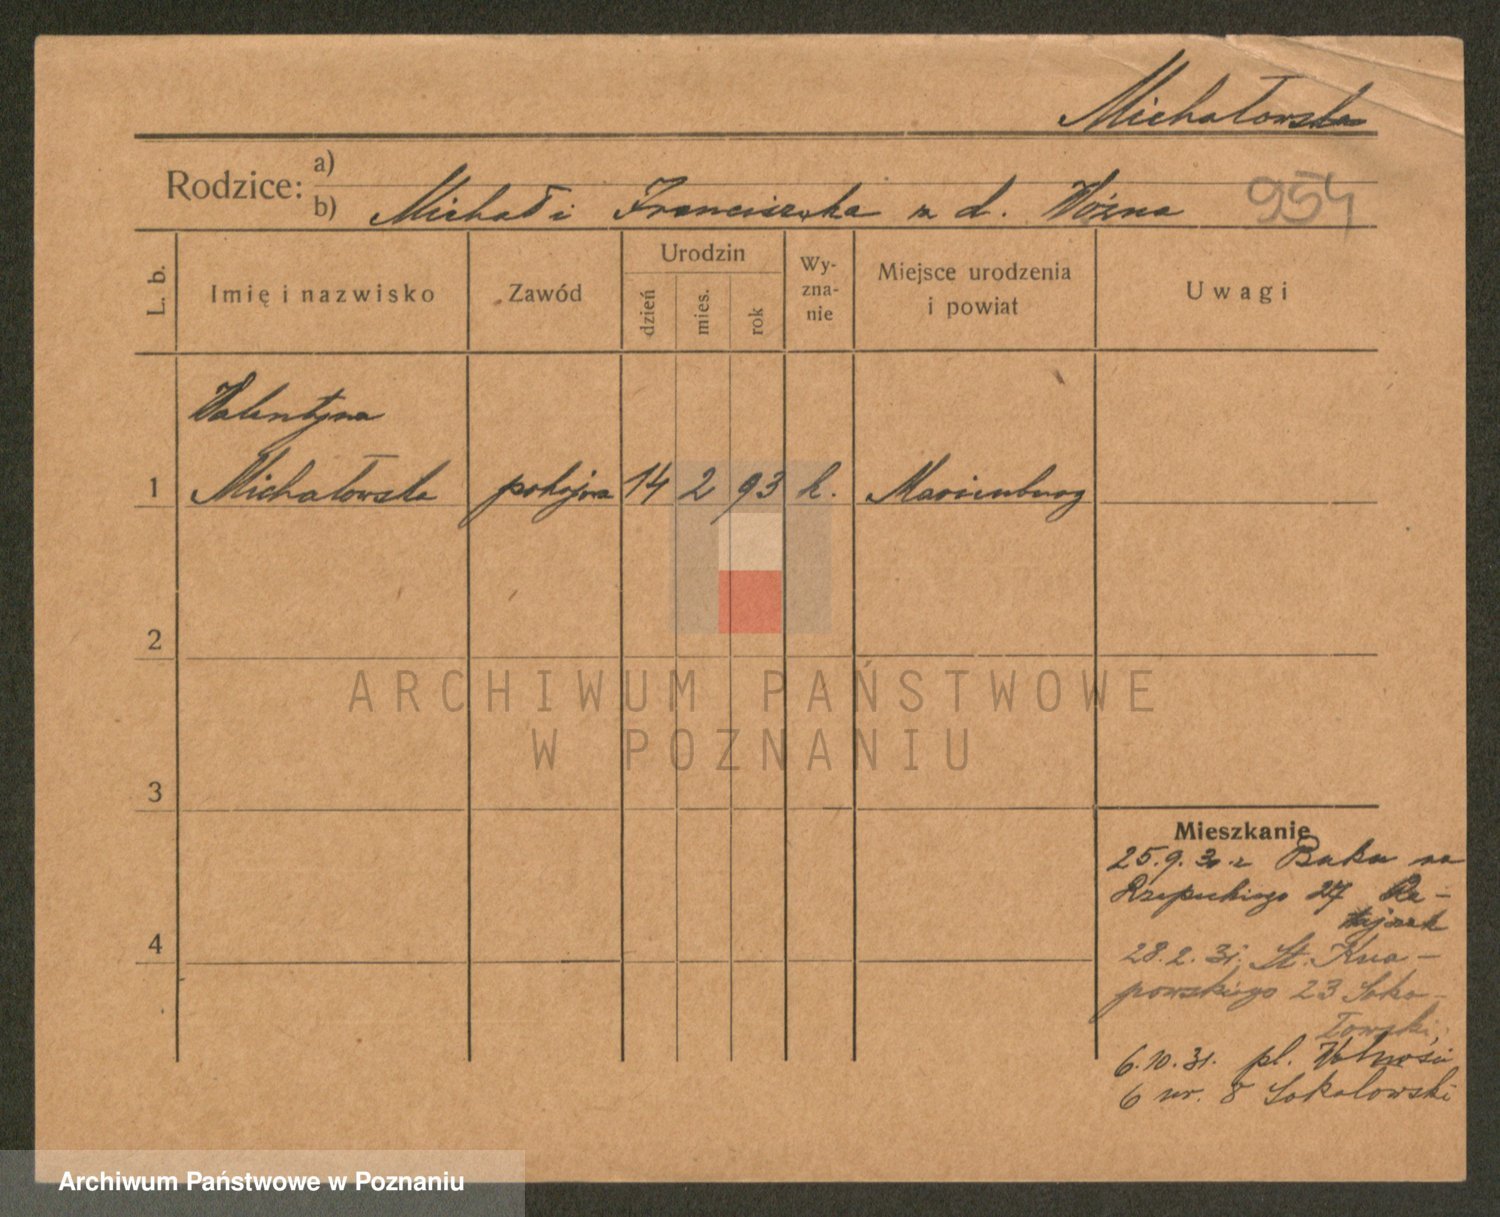 Michałowska
Rodzice: a)
b) Michał i Franciszka z d. Woźna 954
L. b. Imię i nazwisko Zawód Urodzin dzień mies. rok Wyznanie Miejsce urodzenia i powiat Uwagi
Walentyna
1 Michałowska pokojowa 14 2 93 k. Marienburg
2
ARCHIWUM PAŃSTWOWE
W POZNANIU
3
Mieszkanie
25.9.30 z Buku na
Rzepeckiego 27 Ra-
tajczak
4
28.2.31. St. Kna-
powskiego 23 Soko-
łowski,
6.10.31. pl. Wolności
6 nr. 8 Sokołowski
Archiwum Państwowe w Poznaniu